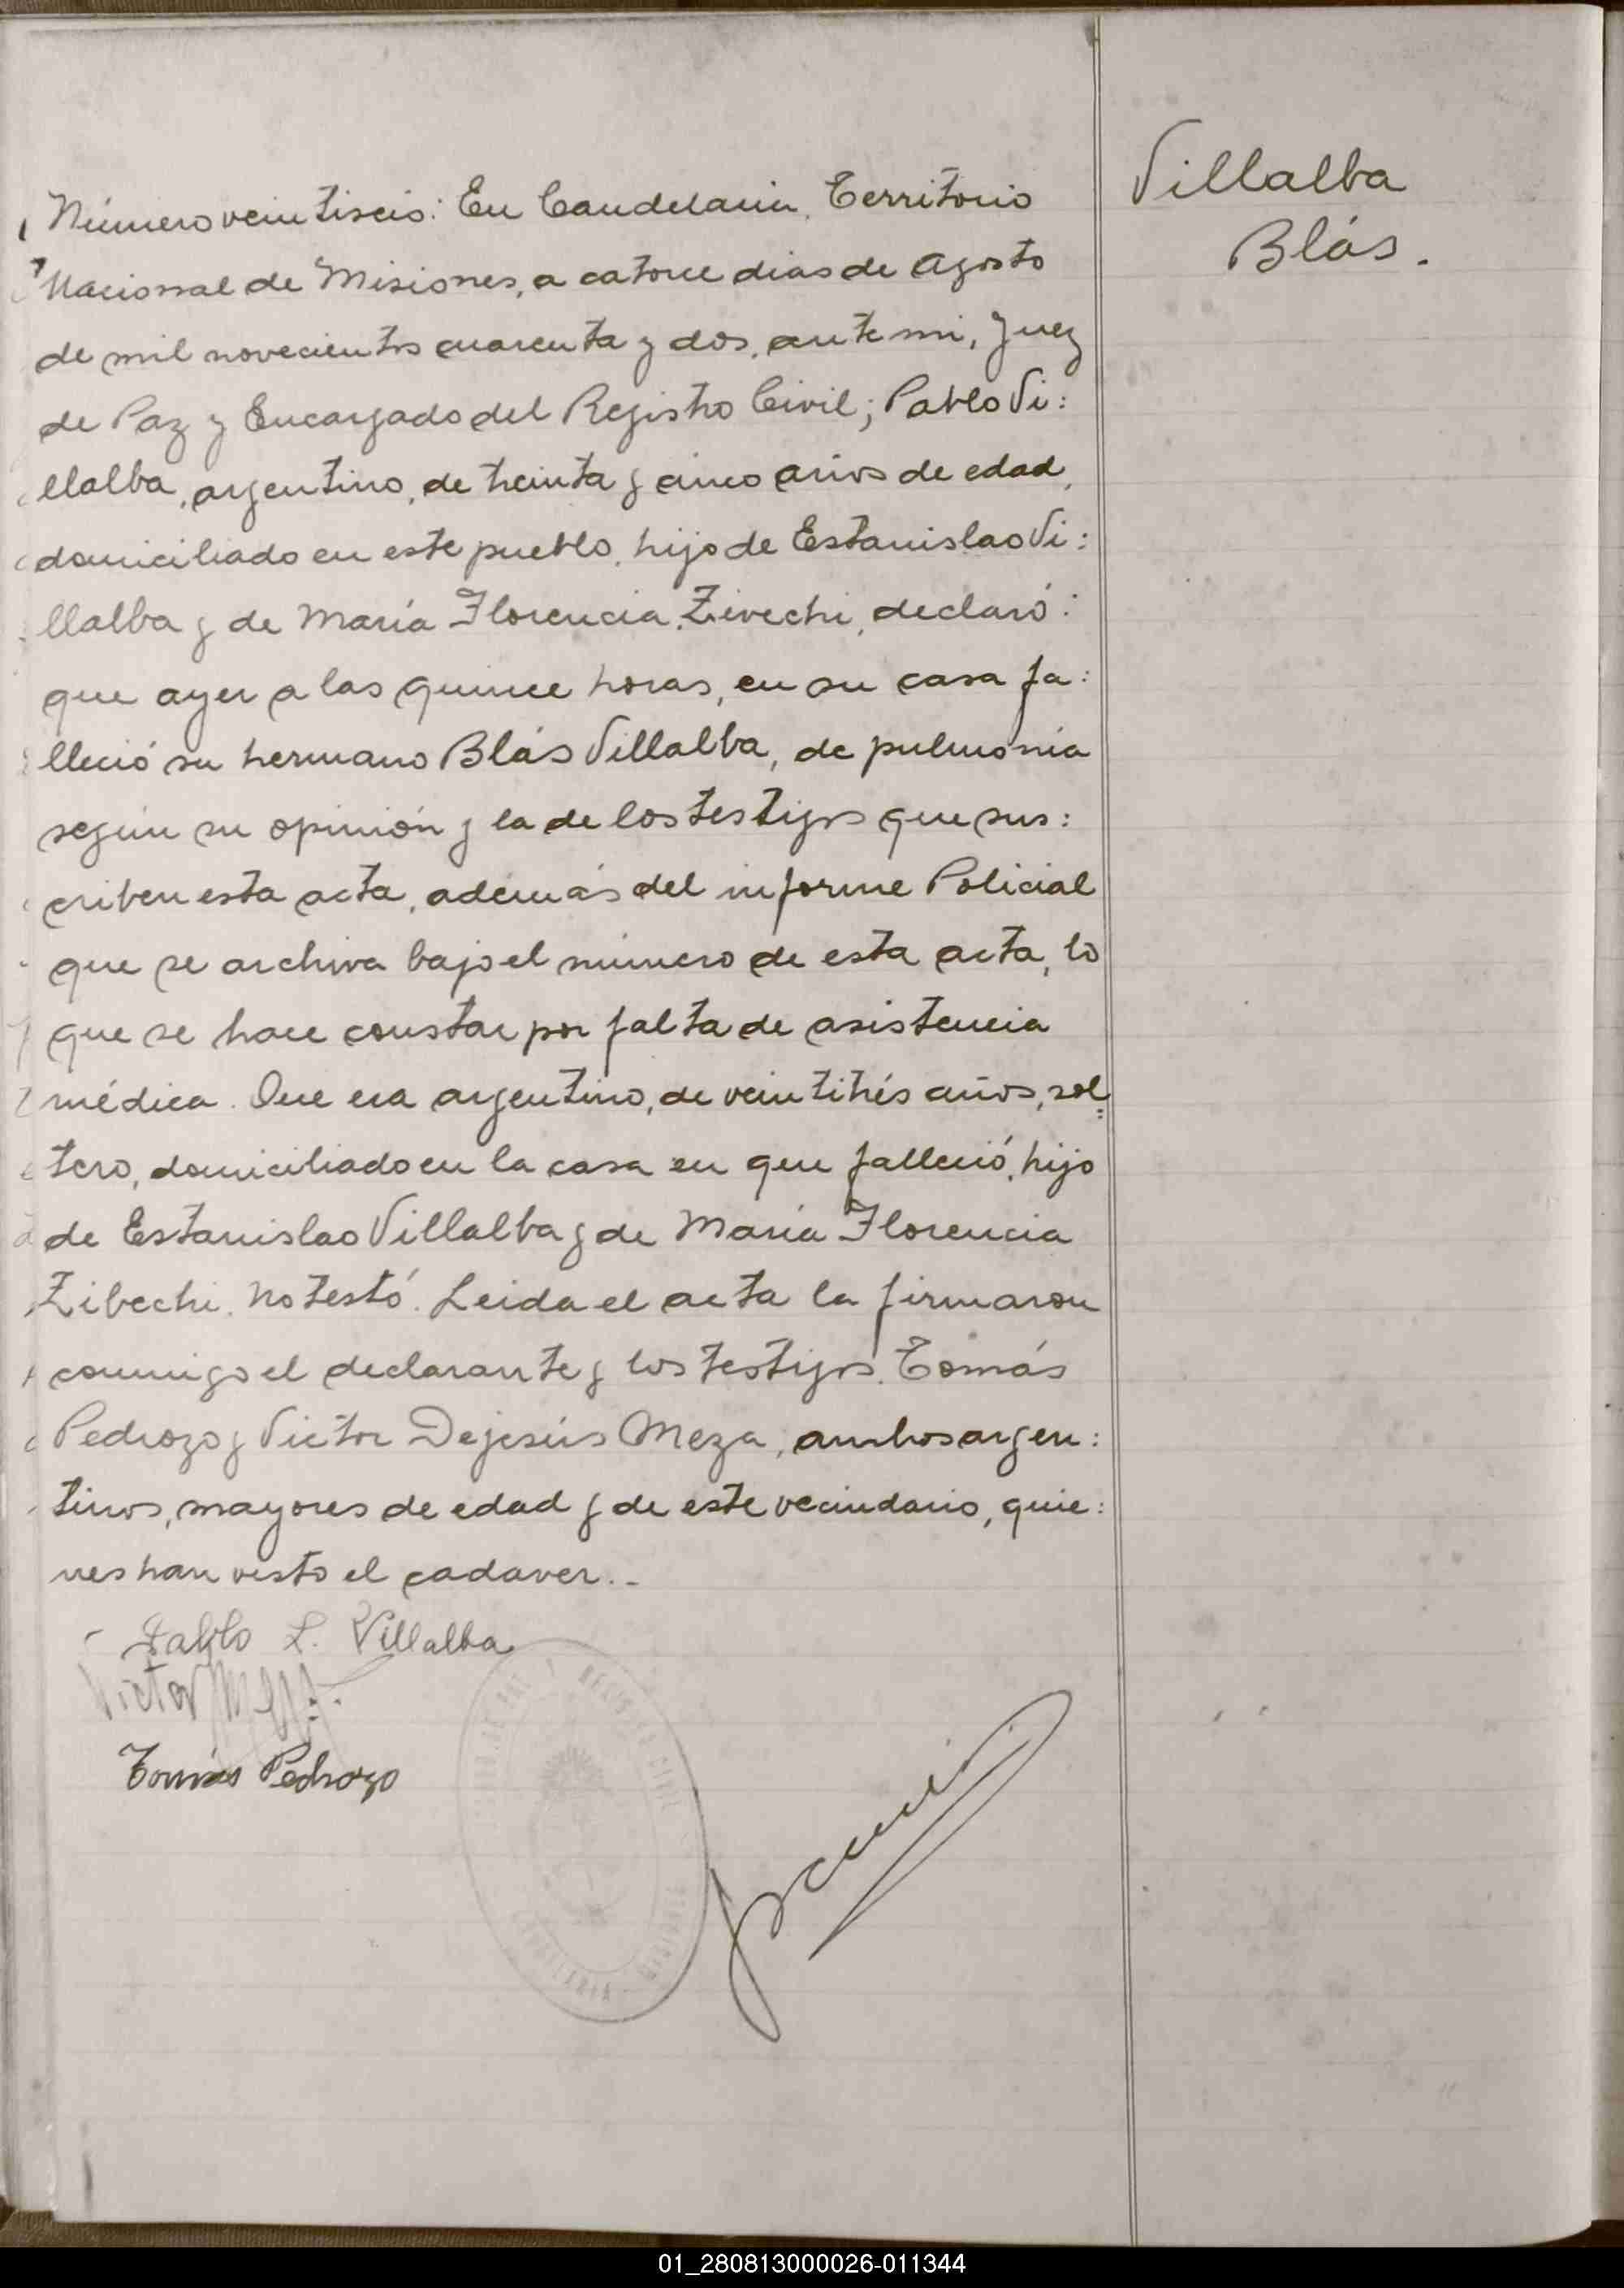 Número veintiseis: En Candelaria, Territorio
Nacional de Misiones, a catorce dias de Agosto
de mil novecientos cuarenta y dos, ante mi, Juez
de Paz y Encargado del Registro Civil; Pablo Vi:
llalba, argentino, de treinta y cinco años de edad,
domiciliado en este pueblo, hijo de Estanislao Vi:
llalba y de María Florencia Zivechi, declaró:
que ayer a las quince horas, en su casa fa:
lleció su hermano Blás Villalba, de pulmonía
según su opinión y la de los testigos que sus:
criben esta acta, además del informe Policial
que se archiva bajo el número de esta acta, lo
que se hace constar por falta de asistencia
médica. Que era argentino, de veintitrés años, sol=
tero, domiciliado en la casa en que falleció, hijo
de Estanislao Villalba y de María Florencia
Zibechi. No testó. Leida el acta la firmaron
conmigo el declarante y los testigos. Tomás
Pedrozo y Victor Dejesús Meza, ambos argen:
tinos, mayores de edad y de este vecindario, quie:
nes han visto el cadaver..-
Pablo L. Villalba
Victor Meza
Tomás Pedrozo
REGISTRO CIVIL
CANDELARIA - MISIONES
Villalba
Blás.
01_280813000026-011344